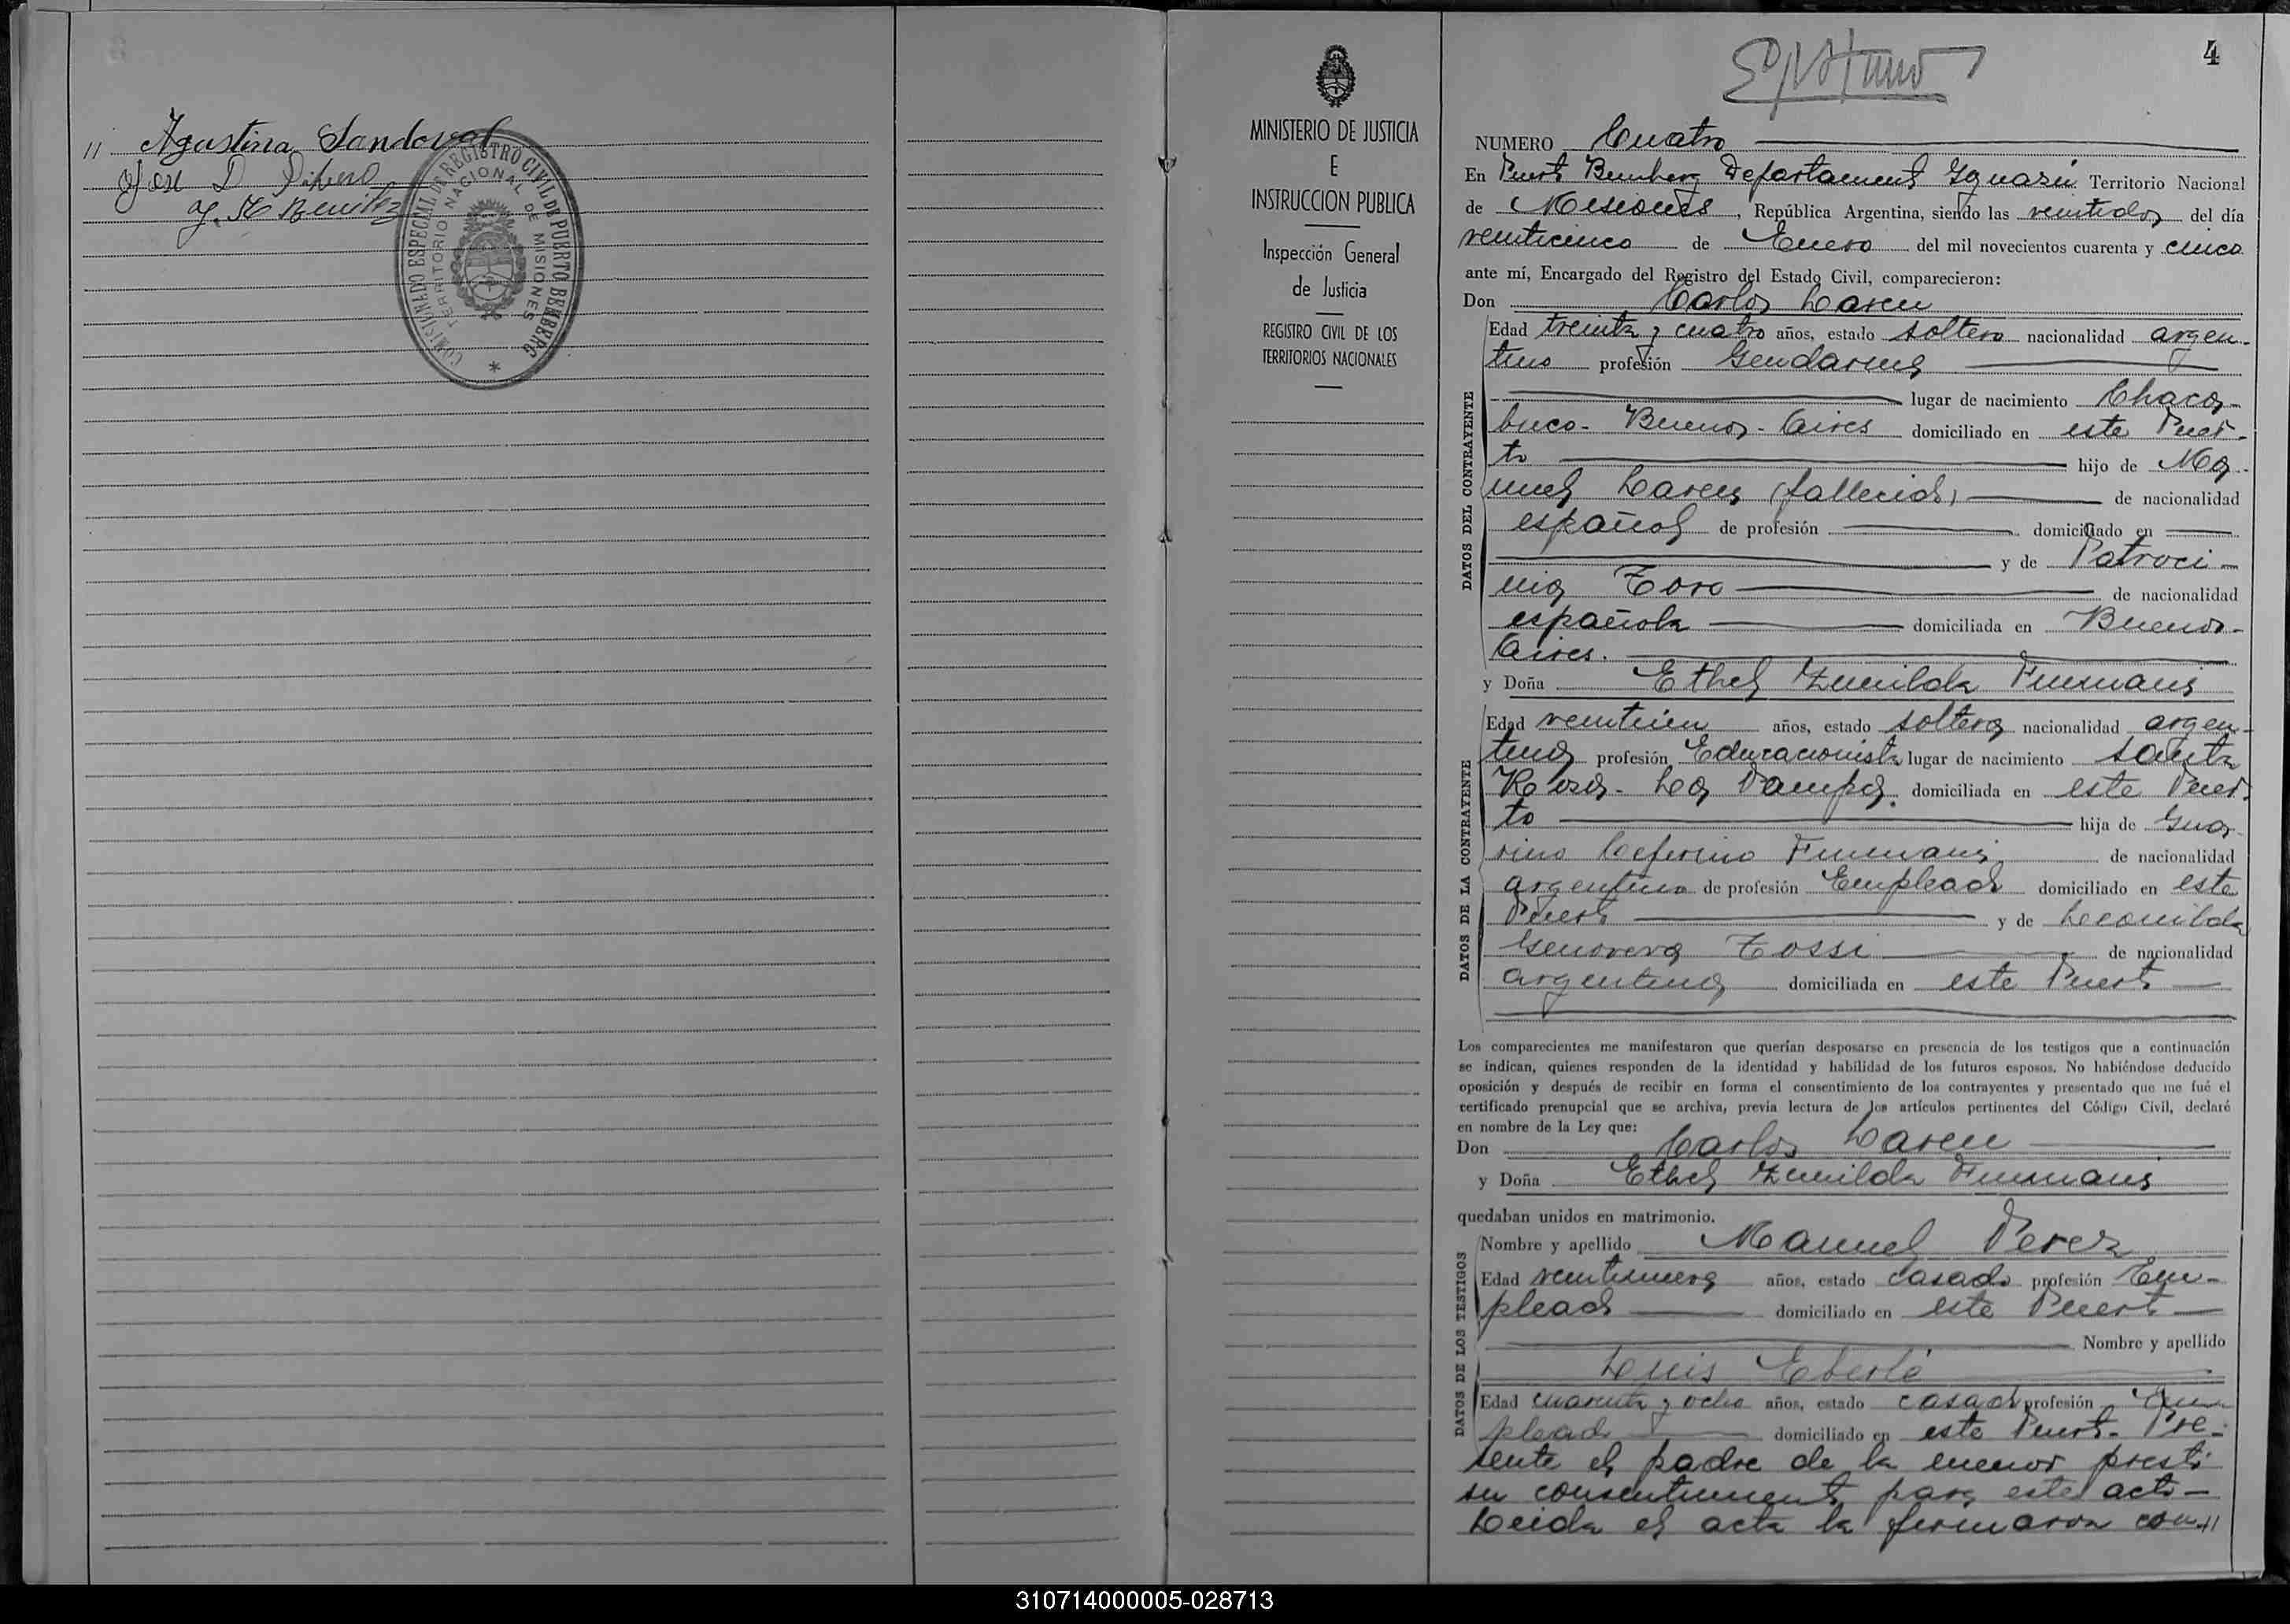 11 Agustina Sandoval
José D.
J. M. Benitez
COMISIONADO ESPECIAL DE REGISTRO CIVIL DE PUERTO BEMBERG
TERRITORIO NACIONAL DE MISIONES
MINISTERIO DE JUSTICIA
E
INSTRUCCION PUBLICA
Inspección General
de Justicia
REGISTRO CIVIL DE LOS
TERRITORIOS NACIONALES
4
NUMERO Cuatro
En Puerto Bemberg Departamento Iguazú Territorio Nacional
de Misiones, República Argentina, siendo las veintidos del día
veinticinco de Enero del mil novecientos cuarenta y cinco
ante mí, Encargado del Registro del Estado Civil, comparecieron:
Don Carlos Laren
DATOS DEL CONTRAYENTE
Edad treinta y cuatro años, estado soltero nacionalidad argen-
tino profesión Gendarme
lugar de nacimiento Chaca-
buco - Buenos - Aires domiciliado en este Puer-
to hijo de Ma-
nuel Laren (fallecido) de nacionalidad
español de profesión domiciliado en
y de Patroci-
nia Toro de nacionalidad
española domiciliada en Buenos-
Aires.
y Doña Ethel Zunilda Fummani
DATOS DE LA CONTRAYENTE
Edad veintiun años, estado soltera nacionalidad argen-
tina profesión Educacionista lugar de nacimiento Santa
Rosa - La Pampa. domiciliada en este Puer-
to hija de Gua-
rino Ceferino Fummani de nacionalidad
argentino de profesión Empleado domiciliado en este
Puerto y de Leonilda
Genoveva Tossi de nacionalidad
argentina domiciliada en este Puerto
Los comparecientes me manifestaron que querían desposarse en presencia de los testigos que a continuación
se indican, quienes responden de la identidad y habilidad de los futuros esposos. No habiéndose deducido
oposición y después de recibir en forma el consentimiento de los contrayentes y presentado que me fué el
certificado prenupcial que se archiva, previa lectura de los artículos pertinentes del Código Civil, declaré
en nombre de la Ley que:
Don Carlos Laren
y Doña Ethel Zunilda Fummani
quedaban unidos en matrimonio.
DATOS DE LOS TESTIGOS
Nombre y apellido Manuel Perez
Edad veintinueve años, estado casado profesión Em-
pleado domiciliado en este Puerto
Nombre y apellido
Luis Eberlé
Edad cuarenta y ocho años, estado casado profesión Em-
pleado domiciliado en este Puerto - Pre-
sente el padre de la menor prestó
su consentimiento para este acto -
Leida el acta la firmaron con //
310714000005-028713